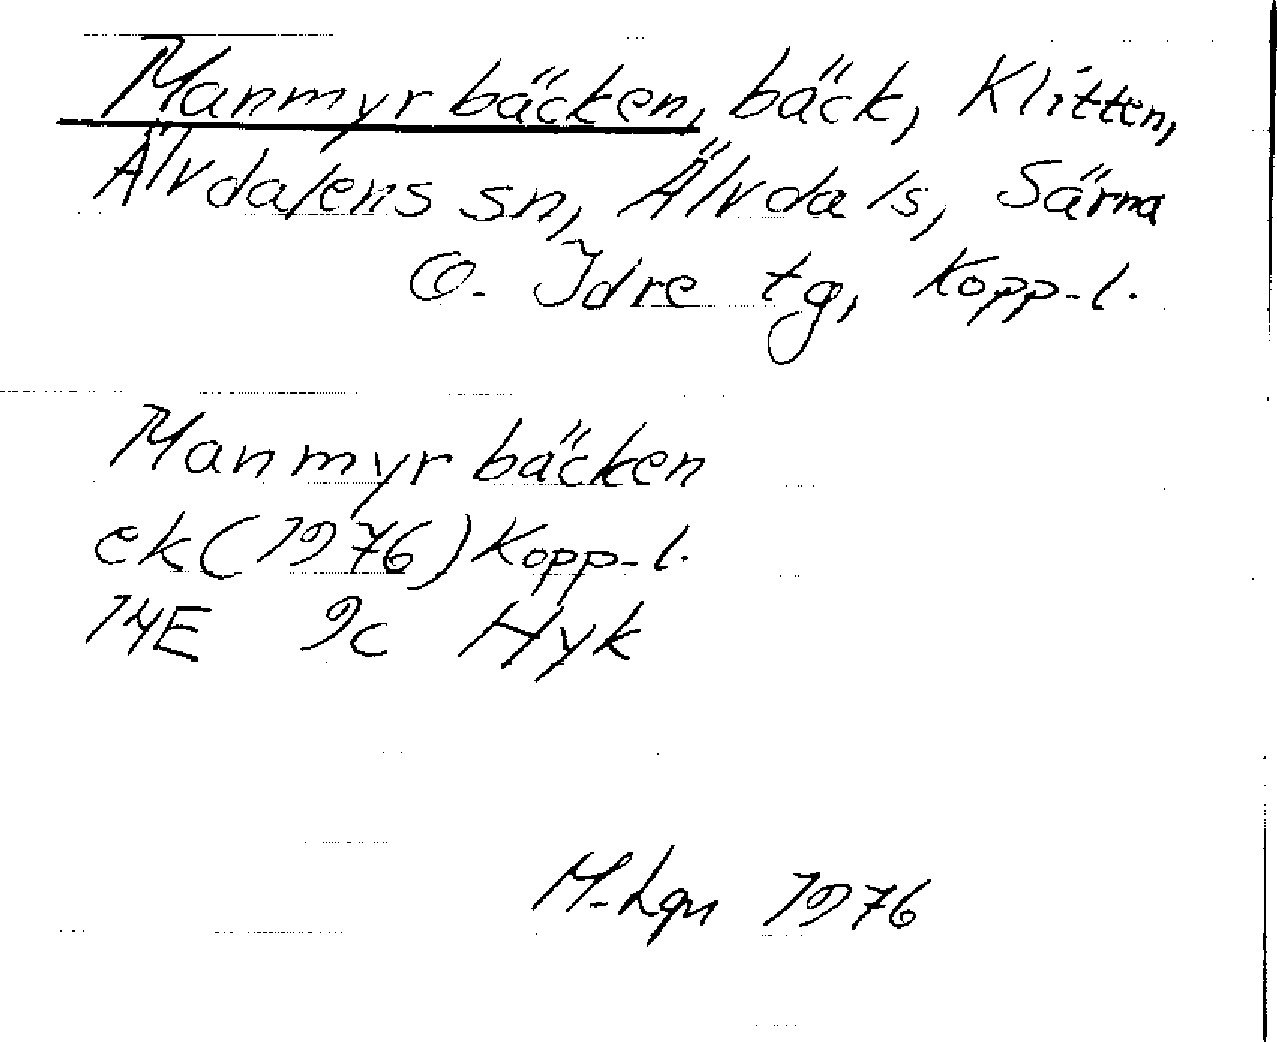 Manmyrbäcken, bäck, Klitten,
Älvdalens sn, Älvdals, Särna
o. Idre tg, Kopp-l.
Manmyrbäcken
ek(1976)Kopp-l.
14E 9c Hyk
M-Lgn 1976